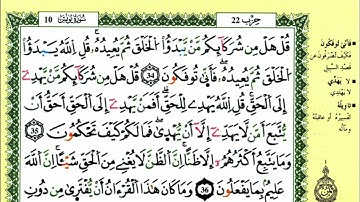 سورة يونس 10
حزب 22
قُلْ هَلْ مِن شُرَكَآئِكُم مَّن يَبْدَؤُاْ الْخَلْقَ ثُمَّ يُعِيدُهُۥ قُلِ اللَّهُ يَبْدَؤُاْ
الْخَلْقَ ثُمَّ يُعِيدُهُۥ فَأَنَّىٰ تُوفَكُونَ 34 قُلْ هَلْ مِن شُرَكَآئِكُم مَّن يَهْدِي
إِلَى الْحَقِّ قُلِ اللَّهُ يَهْدِي لِلْحَقِّ أَفَمَن يَهْدِي إِلَى الْحَقِّ أَحَقُّ أَن
يُتَّبَعَ أَمَّن لَّا يَهَدِّي إِلَّا أَن يُهْدَىٰ فَمَا لَكُمْ كَيْفَ تَحْكُمُونَ 35
وَمَا يَتَّبِعُ أَكْثَرُهُمُۥ إِلَّا ظَنًّا إِنَّ الظَّنَّ لَا يُغْنِي مِنَ الْحَقِّ شَيْـًٔا إِنَّ اللَّهَ
عَلِيمُۢ بِمَا يَفْعَلُونَ 36 وَمَا كَانَ هَٰذَا الْقُرْءَانُ أَنْ يُفْتَرَىٰ مِن دُونِ
فأنى توفكون
فكيف تصرفون عن
قصد السبيل
لا يهدي
لا يهتدي
تاويله
تفسيره أو عاقبته